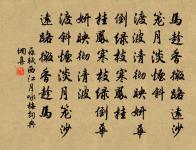 馬趁香微路遠
沙籠月淡煙斜
渡波清徹映妍華
倒綠枝寒鳳挂
挂鳳寒枝綠倒華
妍映徹清波
渡斜煙淡月籠沙
遠路微香趁馬
蘇軾西江月詠梅詞